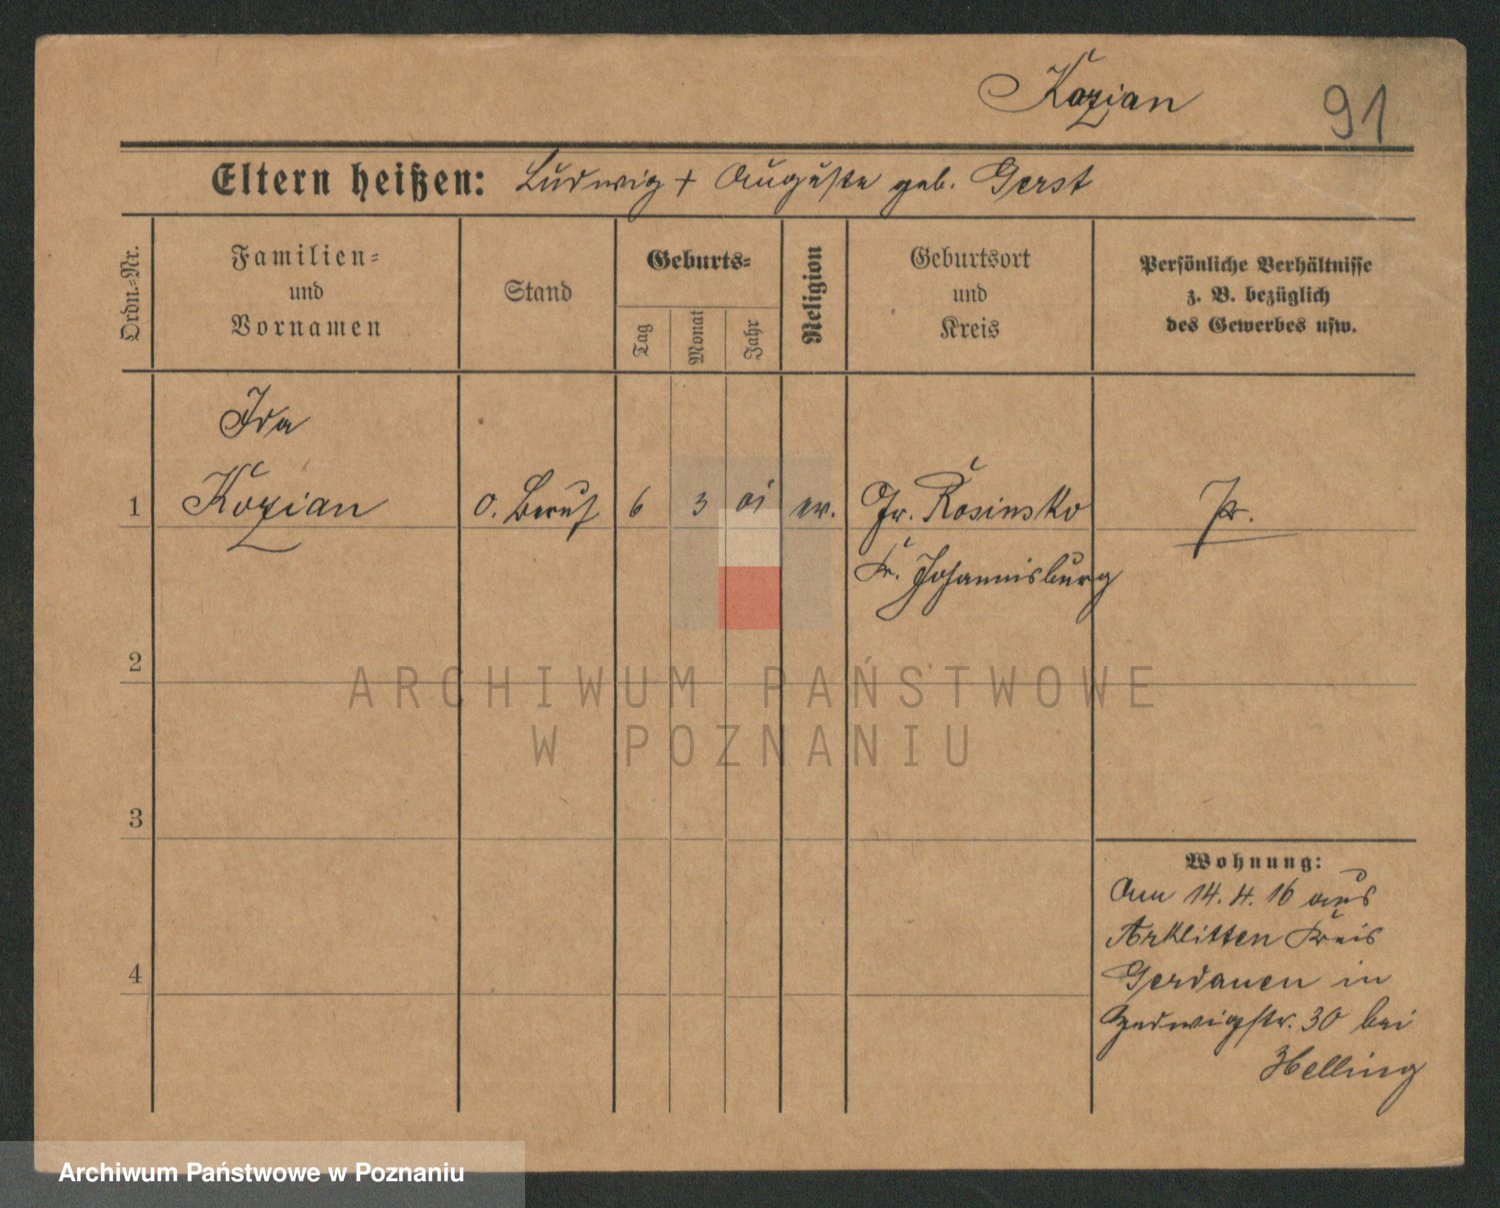 Kozian 91
Eltern heißen: Ludwig + Auguste geb. Gerst
Ordn.-Nr.
Familien-
und
Vornamen
Stand
Geburts-
Tag
Monat
Jahr
Religion
Geburtsort
und
Kreis
Persönliche Verhältnisse
z. B. bezüglich
des Gewerbes usw.
Ida
1 Kozian o. Beruf 6 3 01 ev. Gr. Rosinsko Pr.
Kr. Johannisburg
2
3
4
Wohnung:
Am 14. 4. 16 aus
Arklitten Kreis
Gerdauen in
Hedwigstr. 30 bei
Helling
ARCHIWUM PAŃSTWOWE
W POZNANIU
Archiwum Państwowe w Poznaniu